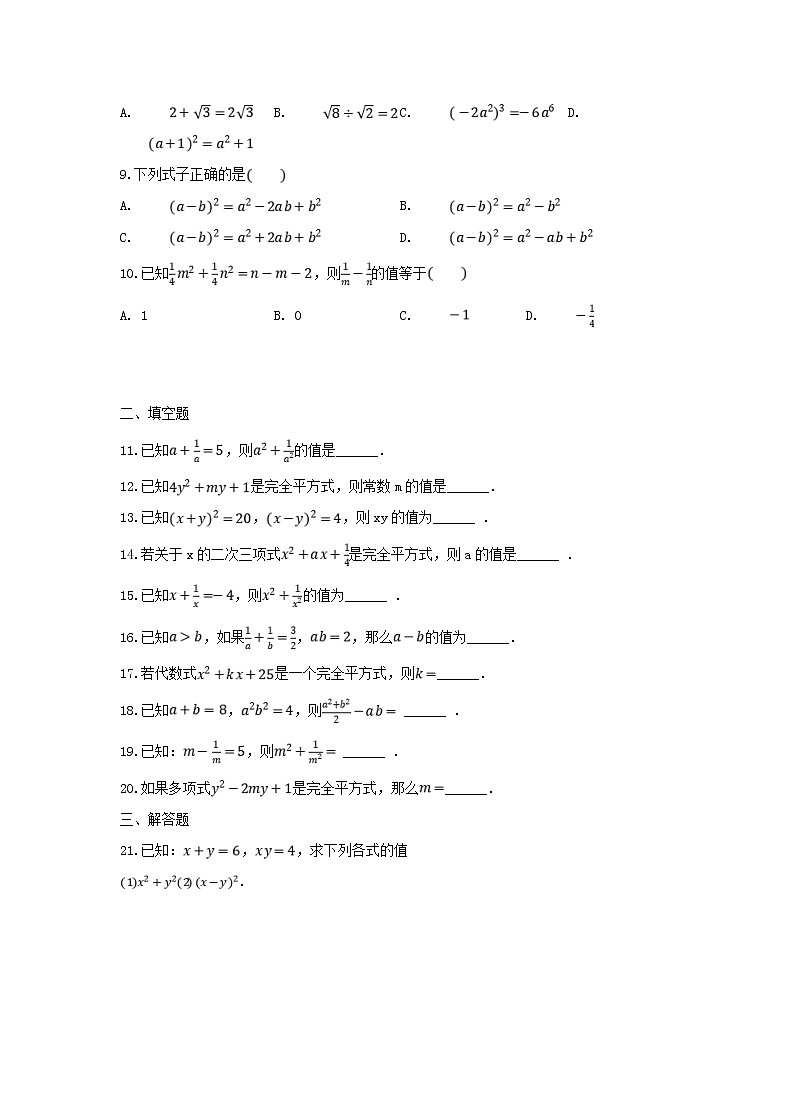 A. 2+√3=2√3 B. √8÷√2=2 C. (−2a²)³=−6a⁶ D.
(a+1)²=a²+1
9.下列式子正确的是( )
A. (a−b)²=a²−2ab+b² B. (a−b)²=a²−b²
C. (a−b)²=a²+2ab+b² D. (a−b)²=a²−ab+b²
10.已知1/4m²+1/4n²=n−m−2，则1/m−1/n的值等于( )
A. 1 B. 0 C. −1 D. −1/4
二、填空题
11.已知a+1/a=5，则a²+1/a²的值是______.
12.已知4y²+my+1是完全平方式，则常数m的值是______.
13.已知(x+y)²=20，(x−y)²=4，则xy的值为______ .
14.若关于x的二次三项式x²+ax+1/4是完全平方式，则a的值是______ .
15.已知x+1/x=−4，则x²+1/x²的值为______ .
16.已知a>b，如果1/a+1/b=3/2，ab=2，那么a−b的值为______.
17.若代数式x²+kx+25是一个完全平方式，则k=______.
18.已知a+b=8，a²b²=4，则(a²+b²)/2−ab= ______ .
19.已知：m−1/m=5，则m²+1/m²= ______ .
20.如果多项式y²−2my+1是完全平方式，那么m=______.
三、解答题
21.已知：x+y=6，xy=4，求下列各式的值
(1)x²+y²(2)(x−y)².